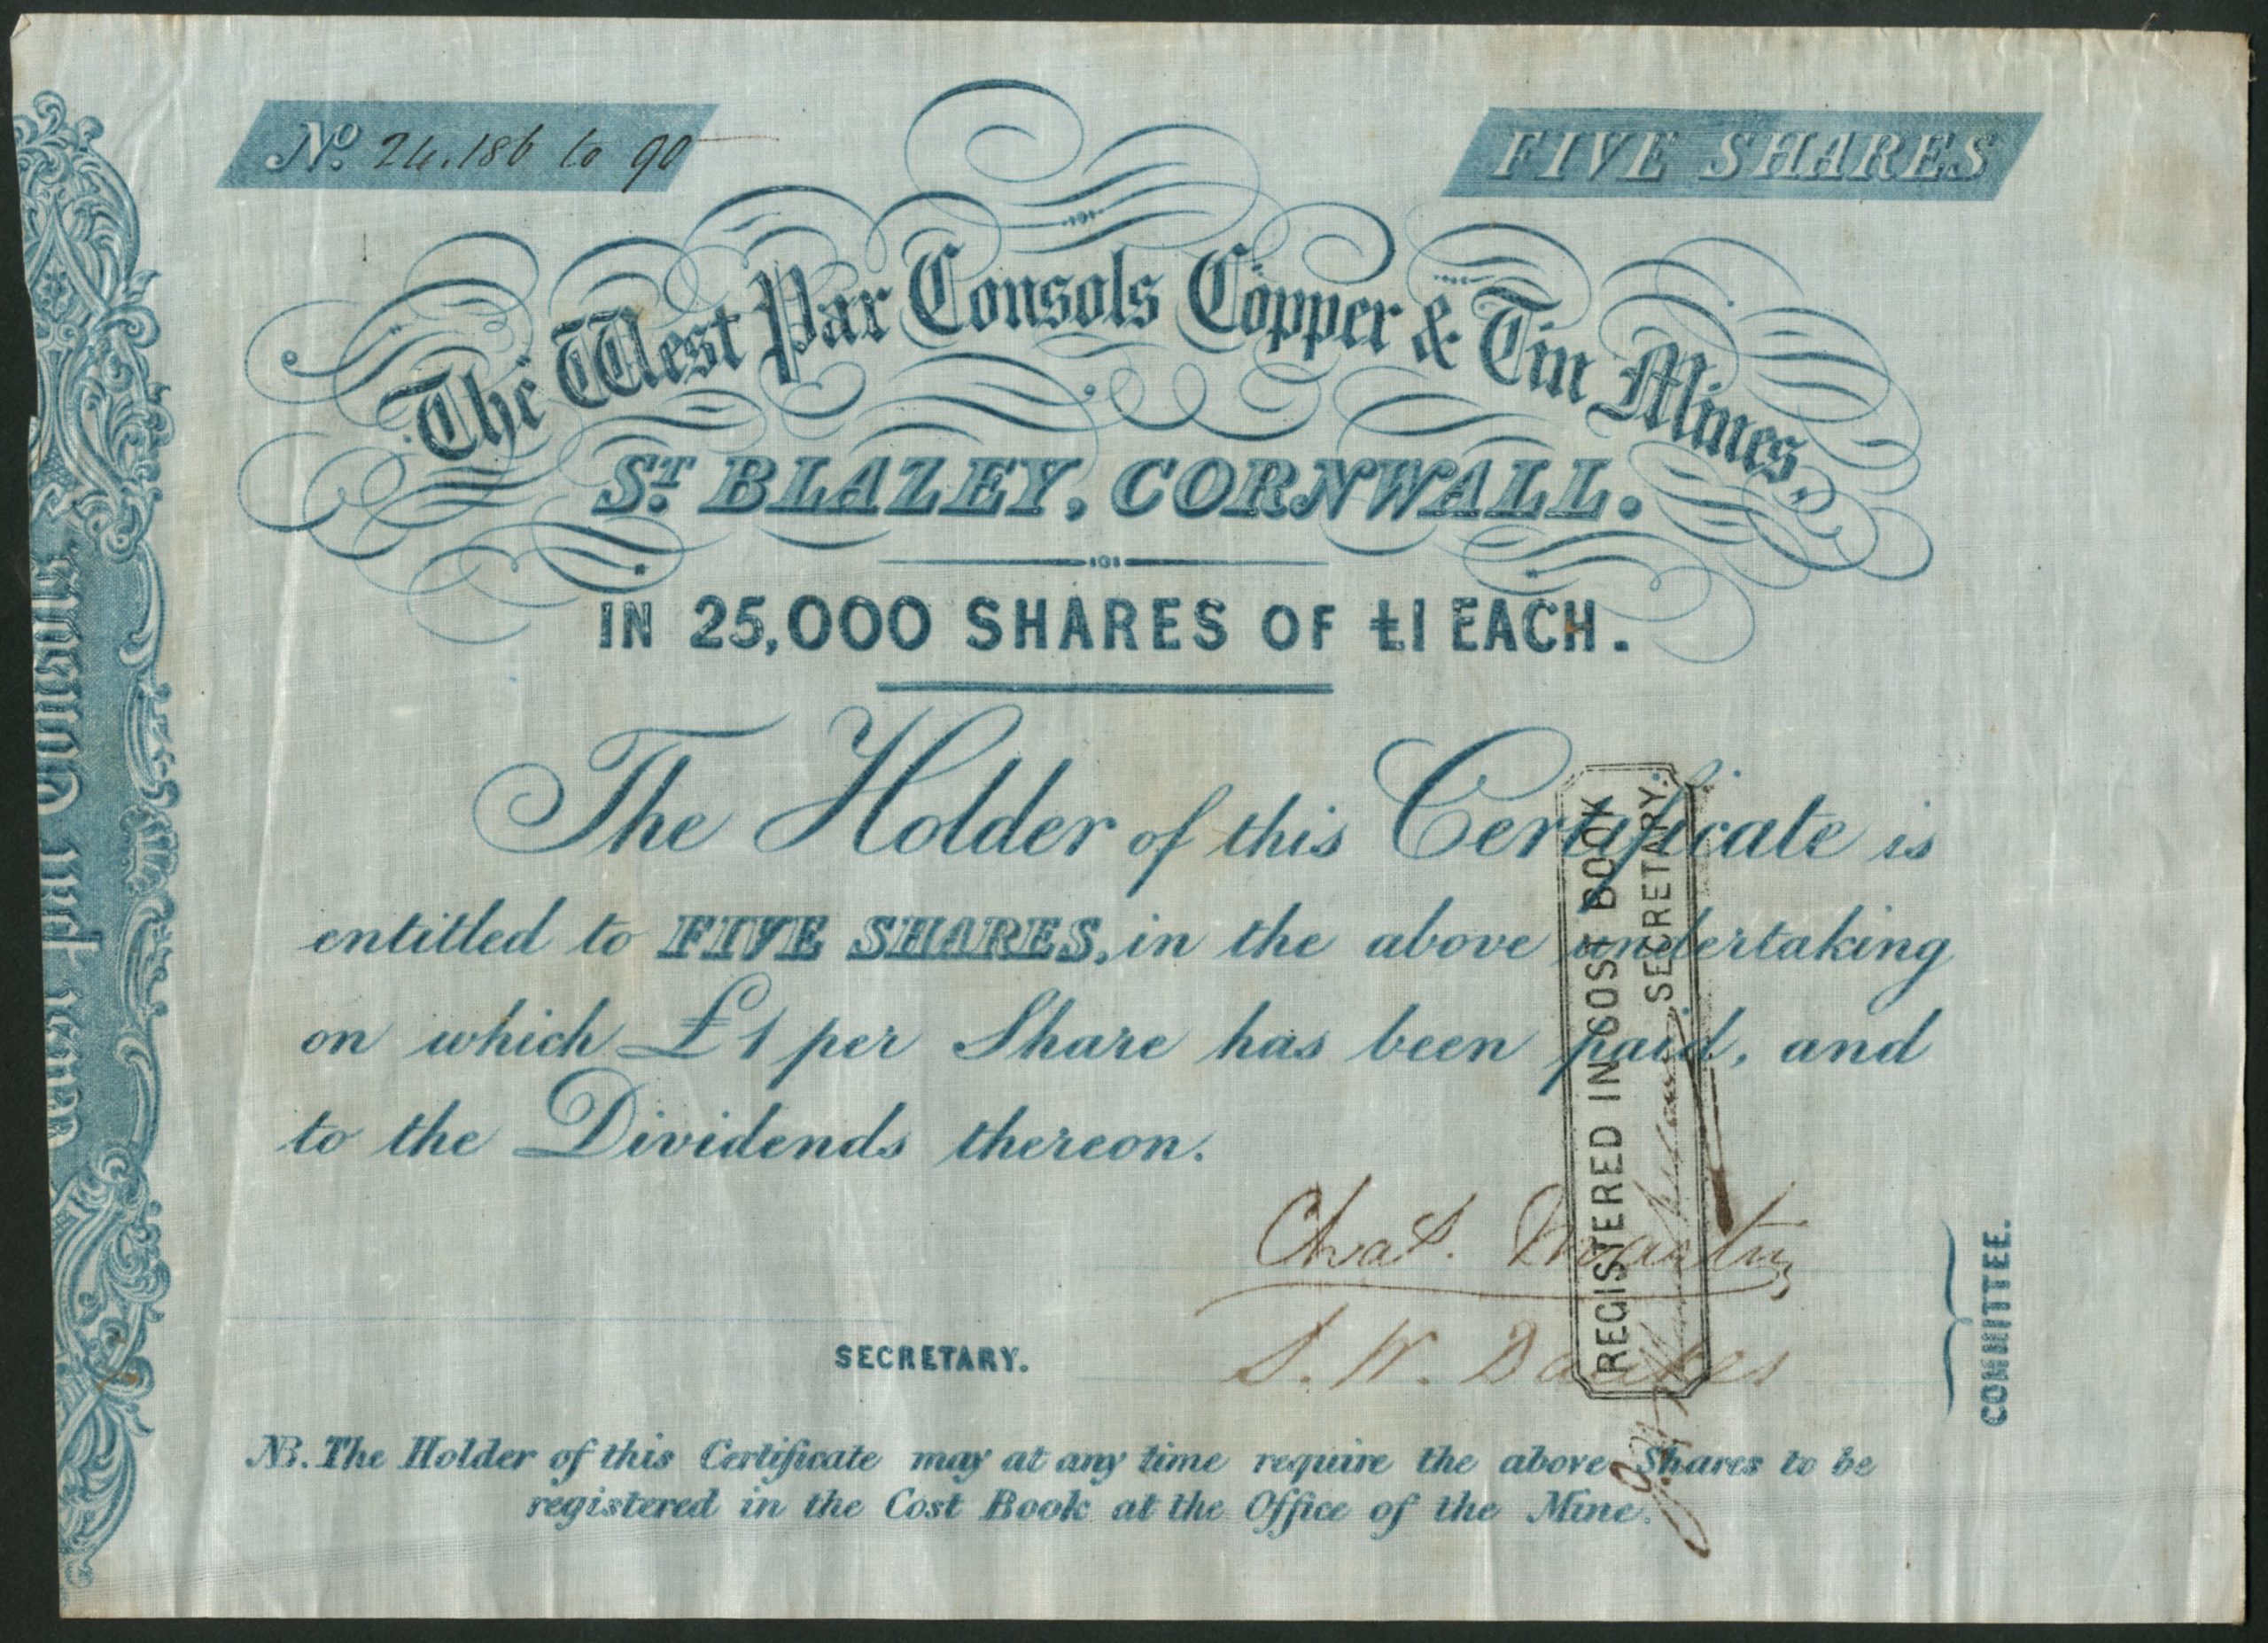 No. 24.186 to 90
FIVE SHARES
The West Par Consols Copper & Tin Mines,
ST. BLAZEY, CORNWALL.
IN 25,000 SHARES OF £1 EACH.
The Holder of this Certificate is
entitled to FIVE SHARES, in the above undertaking
on which £1 per Share has been paid, and
to the Dividends thereon.
Chas. Martin
S. W. Daukes
COMMITTEE.
SECRETARY.
NB. The Holder of this Certificate may at any time require the above Shares to be
registered in the Cost Book at the Office of the Mine.
REGISTERED IN COST BOOK
SECRETARY.
West Par Consols.